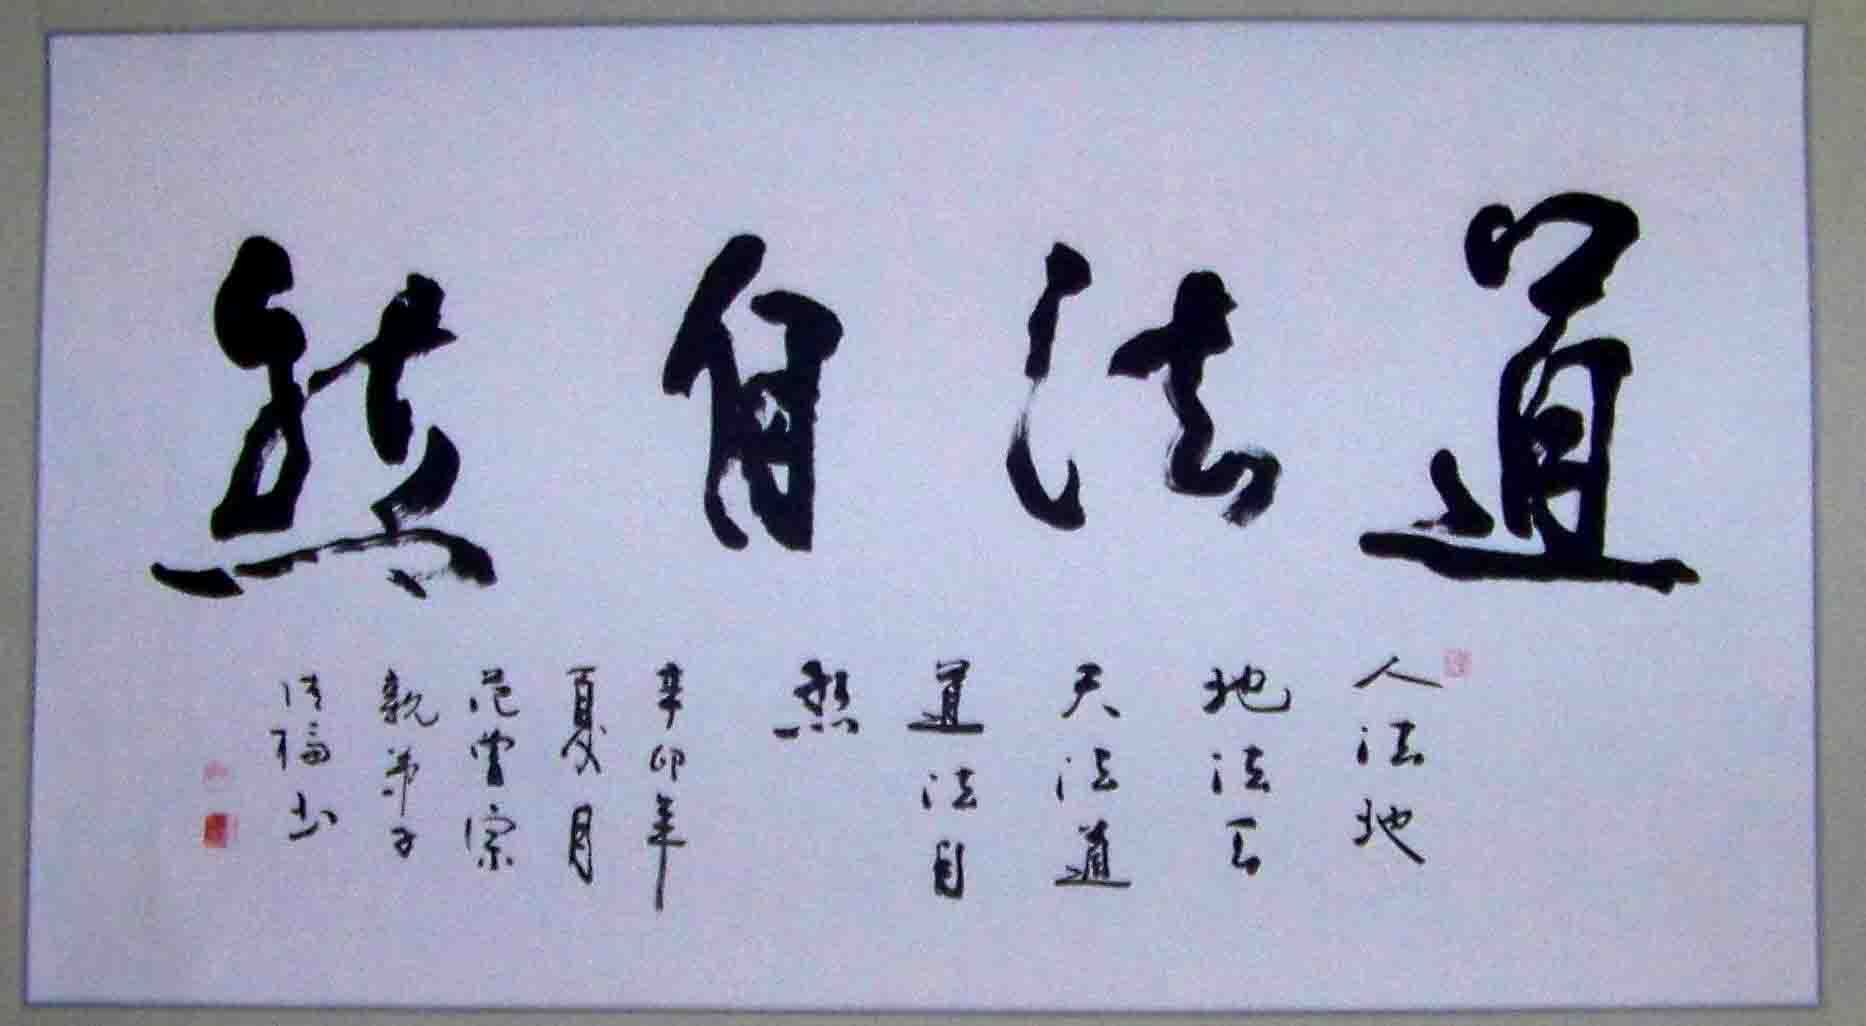 道法自然
人法地
地法天
天法道
道法自
然
辛卯年
夏月
范曾宗
親弟子
福书